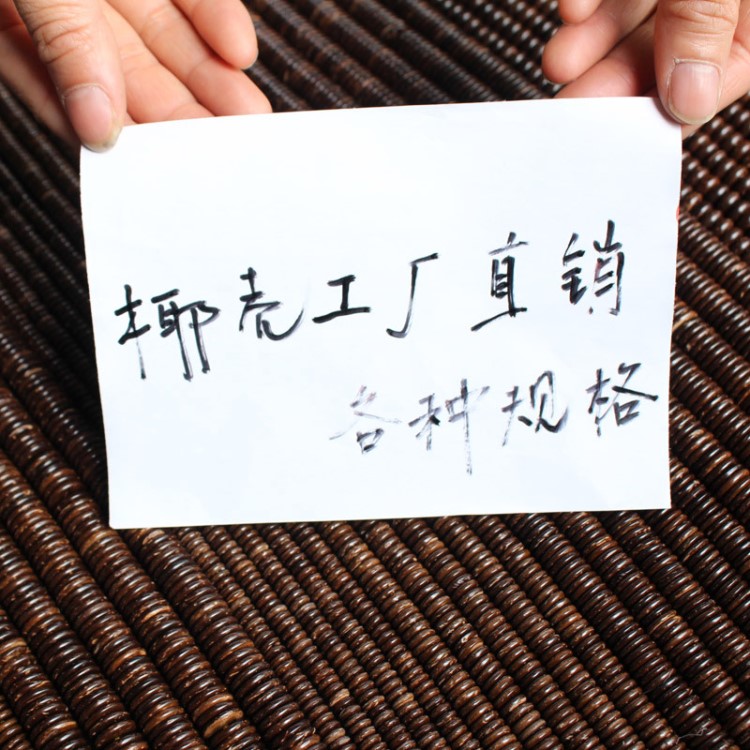 椰壳工厂直销
各种规格